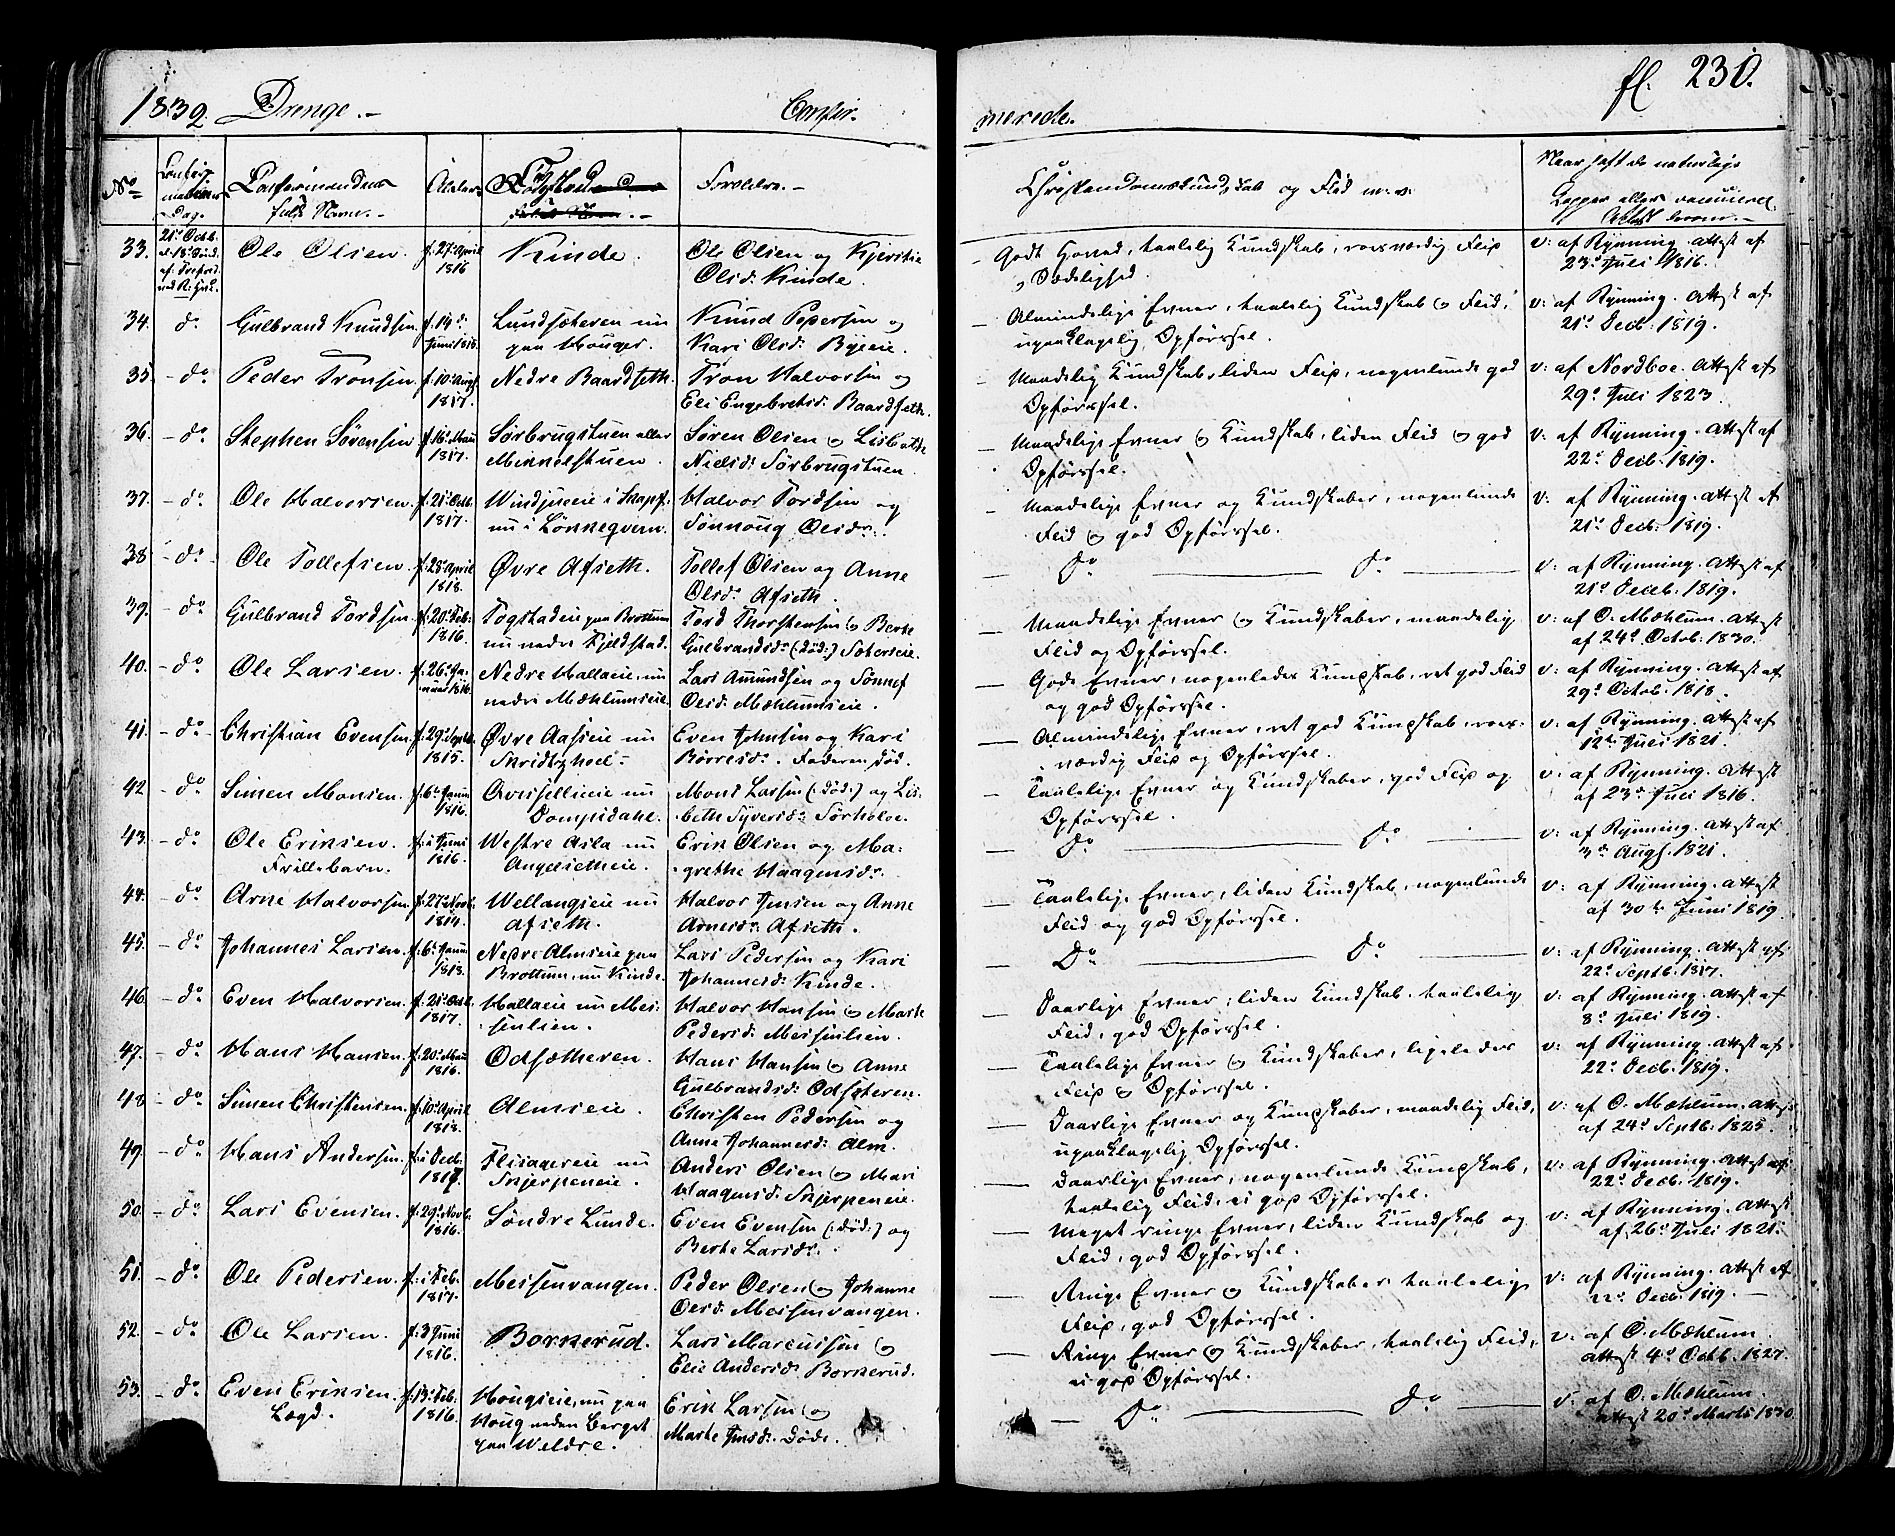 1832. Drenge. -
Confir-
merede.
fl. 230.
No
Confir-
mations
Dag.
Confirmandens
fulde Navn. -
Alder
Forældre. -
Christendomskundskab og Flid m. v.
Naar haft de naturlige
Kopper eller vaccineret
33.
21de Octb.
Ole Olsen.
f. 27de April
1816
Kinde.
Ole Olsen og Kjerstie
Olsd: Kinde.
- Godt Hoved, taalelig Kundskab, roesværdig Flid
og Sædelighed.
v: af Rynning. Attest af
23de Juli 1816.
34.
do
Gulbrand Knudsen
f. 14de
Juni 1818.
Lundsæteren nu
paa Houger.
Knud Pedersen og
Kari Olsd: Byeeie.
- Almindelige Evner, taalelig Kundskab og Flid,
upaaklagelig Opførsel.
v: af Rynning. Attest af
21de Decb. 1819.
35.
- do
Peder Tronsen.
f. 10de Augst
1817.
Nedre Baardseth.
Tron Halvorsen og
Eli Engebretsd: Baardseth.
- Maadelig Kundskab, liden Flid, nogenlunde god
Opførsel.
v: af Nordboe. Attest af
29de Juli 1823.
36.
- do
Stephen Sørensen
1817.
Sørbrugstuen eller
Minnelstuen.
Søren Olsen og Lisbethe
Nielsd: Sørbrugstuen.
- Maadelige Evner og Kundskab, liden Flid og god
Opførsel.
v: af Rynning. Attest af
22de Decb. 1819.
37.
- do
Ole Halvorsen.
f. 21de Octb.
1817.
nu i Lønneqvern.
Halvor Tordsen og
Sønnoug Olsdr.
- Maadelige Evner og Kundskaber, nogenlunde
Flid og god Opførsel.
v: af Rynning. Attest af
21de Decb. 1819.
38
- do
Ole Tollefsen.
April
1818.
Øvre Afseth.
Tollef Olsen og Anne
Olsd: Afseth.
- do - do
v: af Rynning. Attest af
21de Decb. 1819.
39.
- do
Gulbrand Tordsen.
f. 20de Feb:
1816.
Togstadeie paa Brottum
nu nedre Kjeldstad.
Tord Thorstensen og Berte
Gulbrandsdr (død:) Sætereie.
- Maadelige Evner og Kundskaber, maadelig
Flid og Opførsel.
v: af O. Mæhlum. Attest
af 24de Octob. 1830.
40.
- do
Ole Larsen.
f. 26de Ja-
nuar 1816.
Nedre Hallaeie, nu
nedre Mæhlumseie
Lars Amundsen og Sønnef
Olsd: Mæhlumseie.
- Gode Evner, nogenledes Kundskab, ret god Flid
og god Opførsel.
v: af Rynning. Attest af
29de Octob. 1818.
41.
- do
Christian Evensen
f. 29de Septb.
1815.
Øvre Aaseie nu
Skridtshoel.
Even Johnsen og Kari
Børresd:. Faderen død.
- Almindelige Evner, ret god Kundskab, roes-
værdig Flid og Opførsel.
v: af Rynning. Attest af
12te Juli 1821.
42
- do
Simen Monsen.
f. 6te Janu
1816.
nu
Dompidahl.
Mons Larsen (:død:) og Lis-
beth Syversd: Sørholoe.
- Taalelige Evner og Kundskaber, god Flid og
Opførsel.
v: af Rynning. Attest
af 23de Juli 1816.
43.
- do
Ole Eriksen.
Frillebarn.
f. i Juni
1816.
Westre Asla nu
Angelsetheie.
Erik Olsen og Ma-
grethe Haagensdr.
- do - do
v: af Rynning. Attest af
3de Augst. 1821.
44.
- do
Arne Halvorsen
f. 27de Novb.
1814.
Wellangseie nu
Afseth.
Halvor Jensen og Anne
Arnesd: Afseth.
- Taalelige Evner, liden Kundskab, nogenlunde
Flid og god Opførsel.
v: af Rynning. Attest
af 30te Juni 1819.
45.
- do
Johannes Larsen.
f. 6te Janu
1818.
Nedre Almseie paa
Brottum, nu Kinde.
Lars Pedersen og Kari
Johannesd: Kinde.
- Do - do
v: af Rynning. Attest af
22de Septb. 1817.
46.
- do
Even Halvorsen.
f. 21de Octb.
1817.
Hallaeie nu Mes-
senlien.
Halvor Hansen og Marte
Pedersd: Messenlien.
- Daarlige Evner, liden Kundskab, taalelig
Flid, god Opførsel.
v: af Rynning. Attest af
8de Juli 1819.
47.
- do
Hans Hansen.
1816.
Odsætheren.
Hans Hansen og Anne
Gulbrandsd: Odsæteren.
- Taalelige Evner og Kundskaber, ligeledes
Flid og Opførsel.
v: af Rynning. Attest af
22de Decb. 1819.
48
- do
Simen Christensen.
f. 10de April
1818.
Almseie.
Christen Pedersen og
Anne Johannesd: Alm.
- Daarlige Evner og Kundskaber, maadelig Flid,
upaaklagelig Opførsel.
v: af O. Mæhlum. Attest
af 24de Septb. 1825.
49.
- do
Hans Andersen.
f. i Decb.
1817.
Flisagereie nu
Skjerpeneie.
Anders Olsen og Mari
Haagensd: Skjerpeneie.
- Daarlige Evner, nogenlunde Kundskab,
taalelig Flid, ei god Opførsel.
v: af Rynning. Attest af
22de Decb. 1819.
50.
- do
Lars Evensen.
f. 29de Novb.
1816.
Søndre Lunde.
Even Evensen (:død:) og
Berte Larsdr.
- Meget ringe Evner, liden Kundskab og
Flid, god Opførsel.
v: af Rynning. Attest
af 26de Juli 1821.
51.
- do
Ole Pedersen.
f. i Feb.
1817.
Messenvangen.
Peder Olsen og Johanne
Olsd: Messenvangen.
- Ringe Evner og Kundskaber, taalelig
Flid, god Opførsel.
v: af Rynning. Attest af
22de Decb. 1819.
52.
- do
Ole Larsen.
f. 3 Juni
1816.
Borkerud.
Lars Marcussen og
Elie Andersd: Borkerud.
- Ringe Evner og Kundskaber, taalelig Flid,
ei god Opførsel.
v: af O. Mæhlum.
Attest 4de Octb. 1827.
53.
- do
Even Eriksen.
Lægd.
f. 13de Feb.
1816.
Hougseie, nu paa
Houg neden Berget
paa Weldre.
Erik Larsen og
Marte Jensd: Døde.
- Do - do
v: af O. Mæhlum.
Attest 20de Marts 1830.